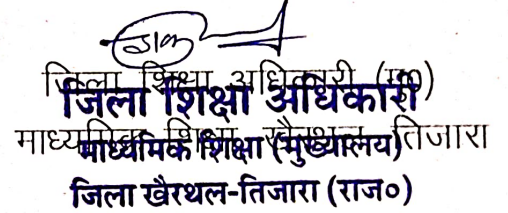 जिला शिक्षा अधिकारी (मु०)
जिला शिक्षा अधिकारी
माध्यमिक शिक्षा खैरथल तिजारा
माध्यमिक शिक्षा (मुख्यालय)
जिला खैरथल-तिजारा (राज०)